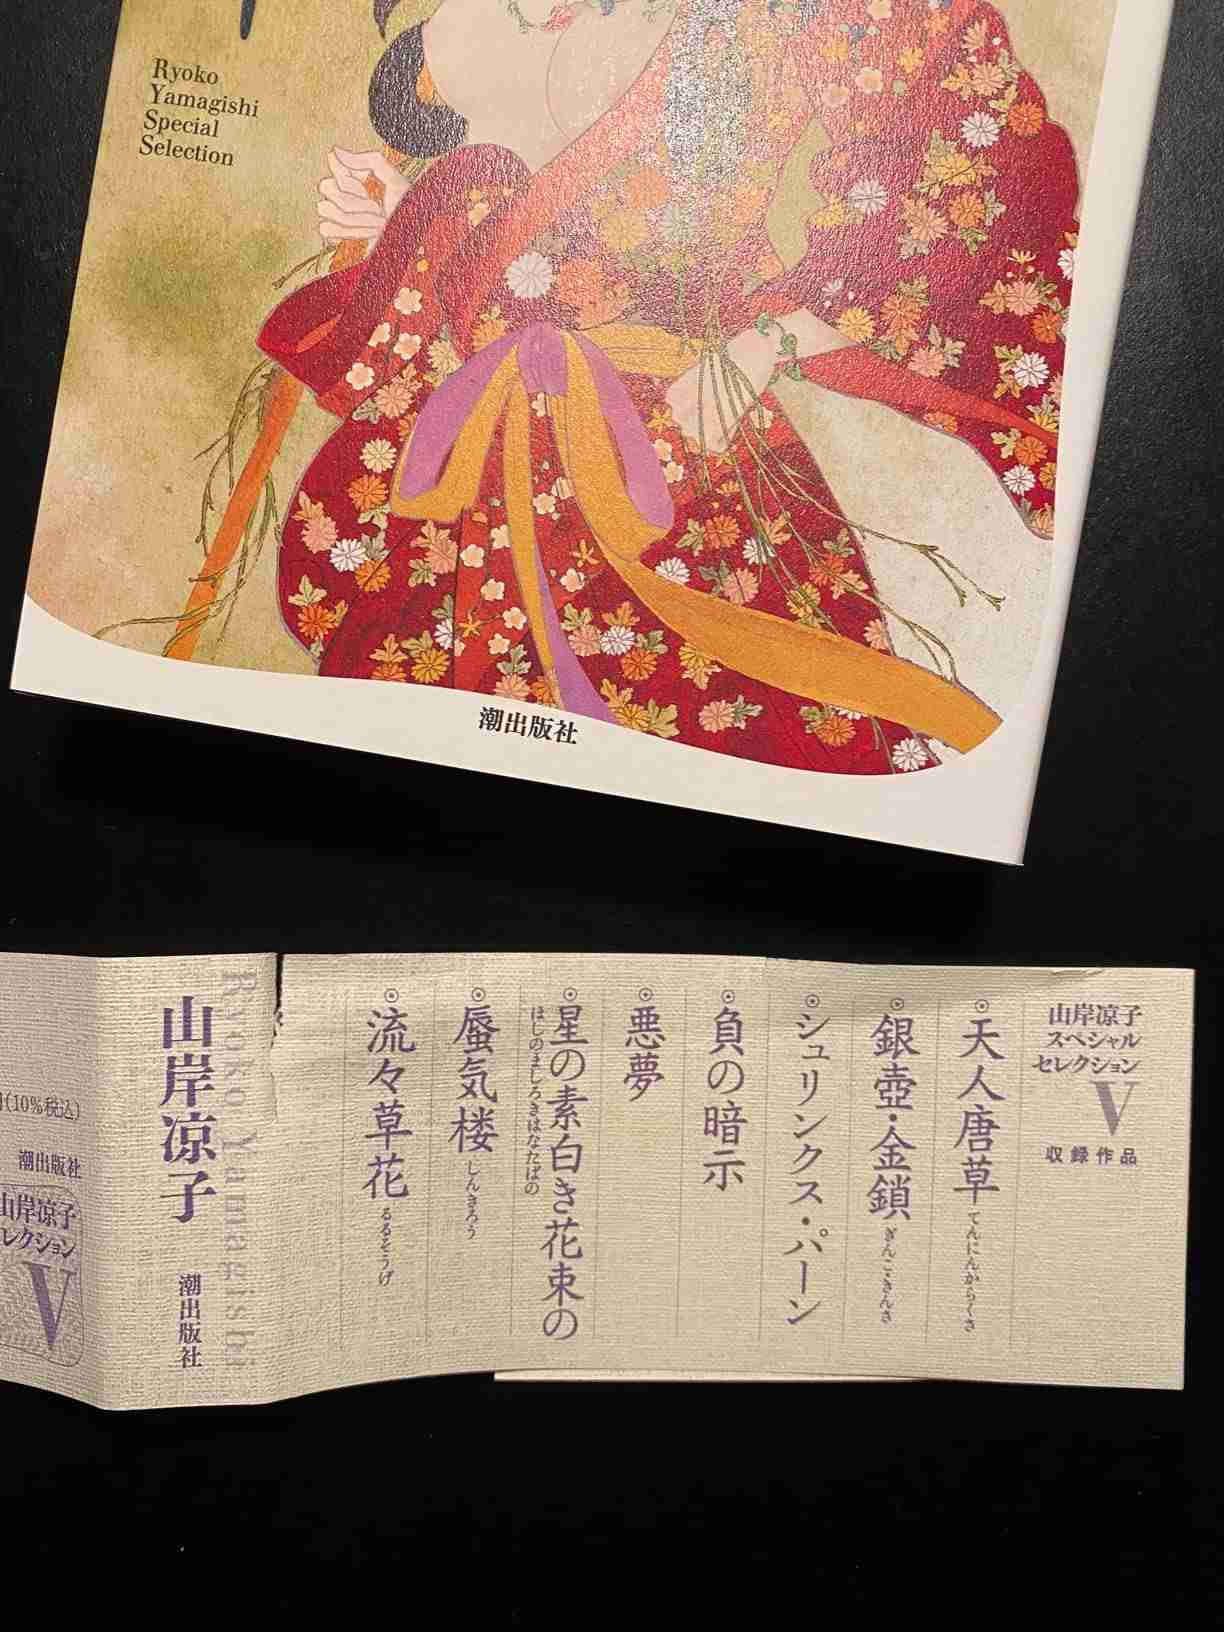 Ryoko
Yamagishi
Special
Selection
潮出版社
山岸凉子
スペシャル
セレクション
V
収録作品
◉天人唐草 てんにんからくさ
◉銀壺・金鎖 ぎんこきんさ
◉シュリンクス・パーン
◉負の暗示
◉悪夢
◉星の素白き花束の
ほしのましろきはなたばの
◉蜃気楼 しんきろう
◉流々草花 るるそうげ
Ryoko Yamagishi
山岸凉子
潮出版社
(10%税込)
潮出版社
山岸凉子
レクション
V